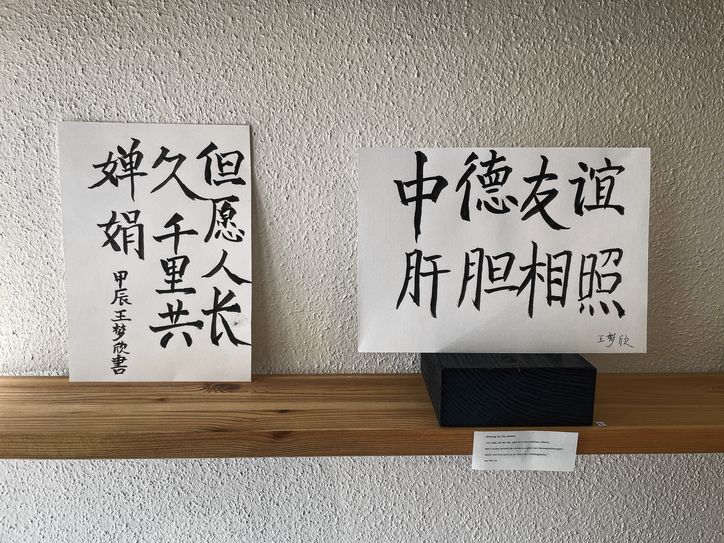 但愿人长
久千里共
婵娟
甲辰王梦欣書
中德友谊
肝胆相照
王梦欣